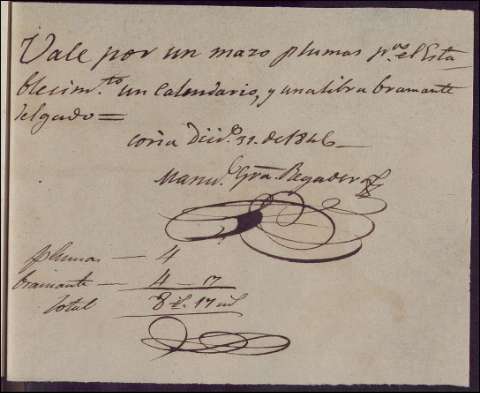 Vale por un mazo plumas p.ª el Esta
blecim.to un Calendario, y una libra bramante
delgado=
Coria Dici.e 31. de 1846_
Man.l Gra. Regadera
plumas — 4
bramante — 4 – 7
total 8 r. 17 ml